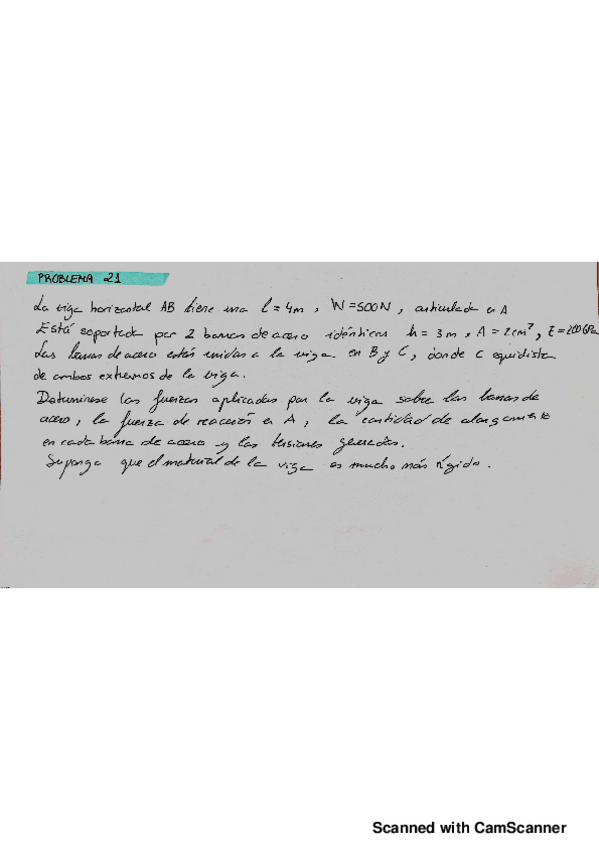 PROBLEMA 21
La viga horizontal AB tiene una l = 4m, W = 500N, articulada en A
Está soportada por 2 barras de acero idénticas h = 3m, A = 2cm², E = 200GPa
Las barras de acero están unidas a la viga en B y C, donde C equidista
de ambos extremos de la viga.
Determínese las fuerzas aplicadas por la viga sobre las barras de
acero, la fuerza de reacción en A, la cantidad de alargamiento
en cada barra de acero y las tensiones generadas.
Suponga que el material de la viga es mucho más rígido.
Scanned with CamScanner